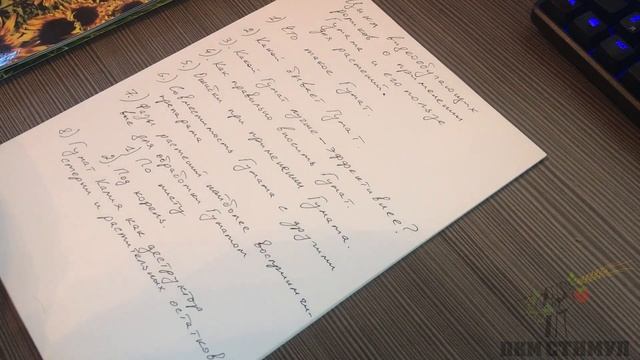 Цикл видеообучающих
роликов о применении
Гумата и его пользе
для растений.
1) Что такое Гумат.
2) Какой бывает Гумат.
3) Какой Гумат лучше — эффективнее?
4) Как правильно вносить Гумат.
5) Ошибки при применении Гумата.
6) Совместимость Гумата с другими
препаратами
7) Фазы растений наиболее восприимчи-
вые для обработки Гуматом
1) По листу
2) Под корень.
8) Гумат калия как деструктор
стерни и растительных остатков
ПКМ СТИМУЛ